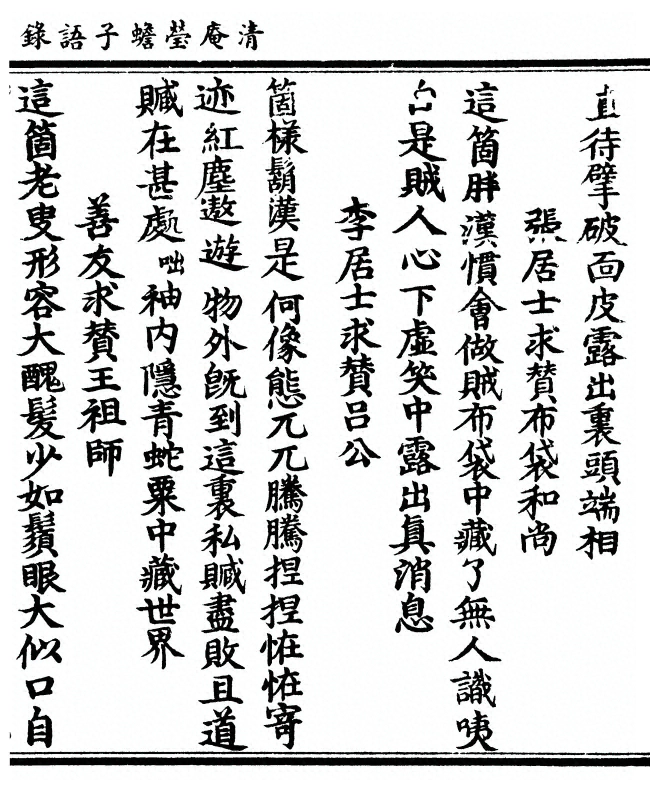 清庵瑩蟾子語錄
直待擘破面皮露出裏頭端相
張居士求贊布袋和尚
這箇胖漢慣會做賊布袋中藏了無人識咦
是賊人心下虛笑中露出眞消息
李居士求贊呂公
箇樣鬍漢是何像態兀兀騰騰捏捏恠恠寄
迹紅塵遨遊物外旣到這裏私贓盡敗且道
贓在甚處咄袖內隱青蛇粟中藏世界
善友求贊王祖師
這箇老叟形容大醜髮少如鬚眼大似口自